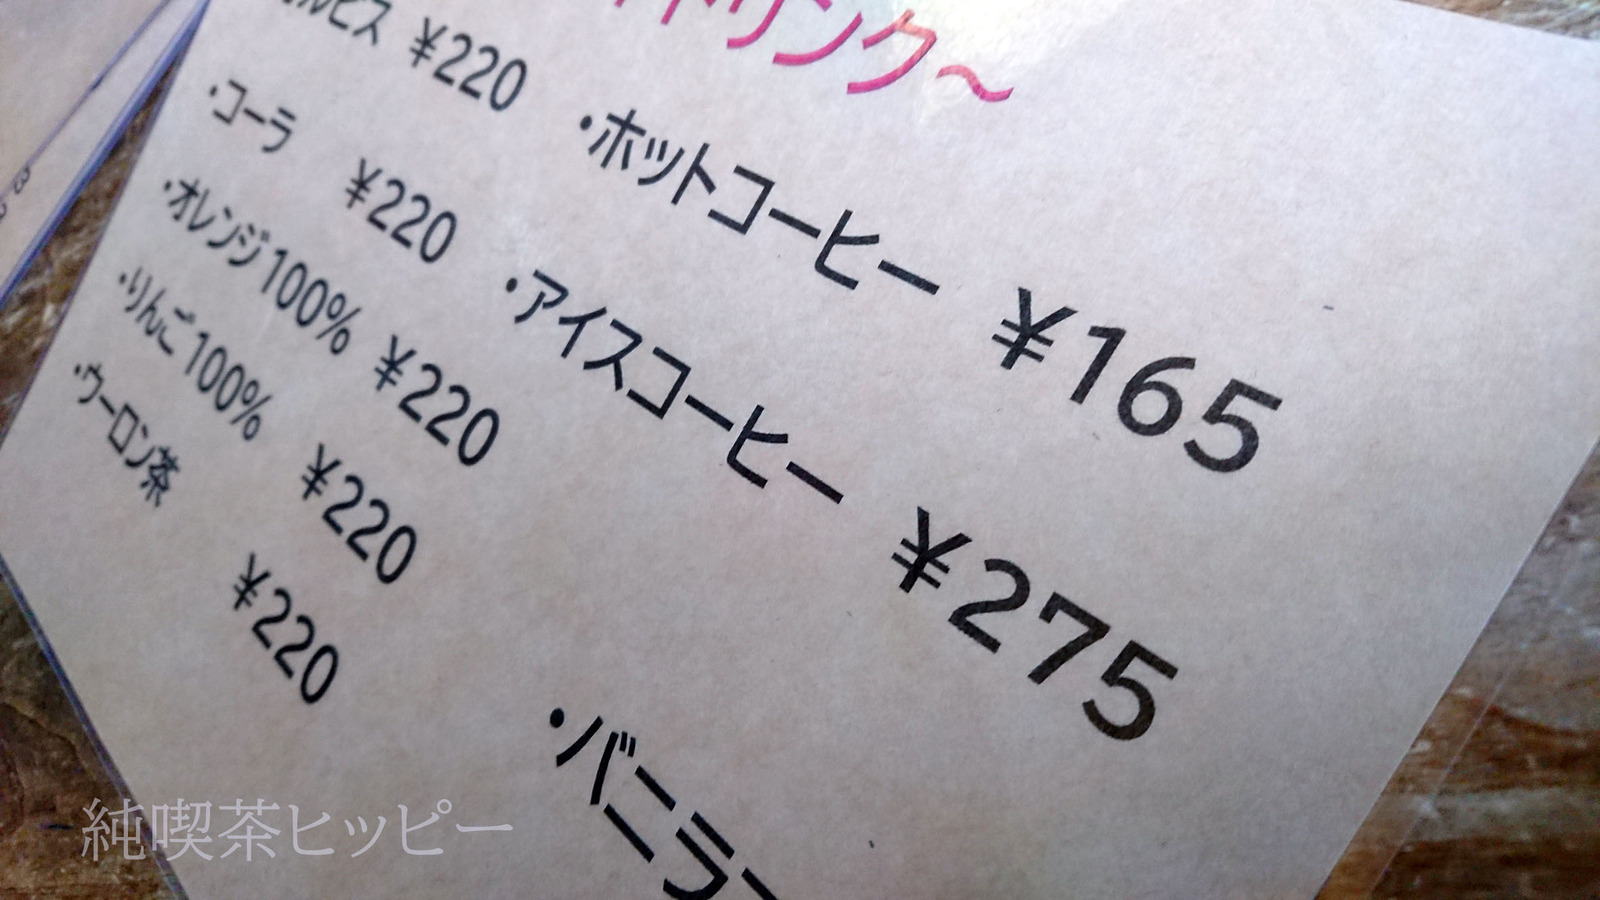 ドリンク～
ルピス ¥220
・コーラ ¥220
・オレンジ100% ¥220
・りんご100% ¥220
・ウーロン茶 ¥220
・ホットコーヒー ¥165
・アイスコーヒー ¥275
・バニラ
純喫茶ヒッピー